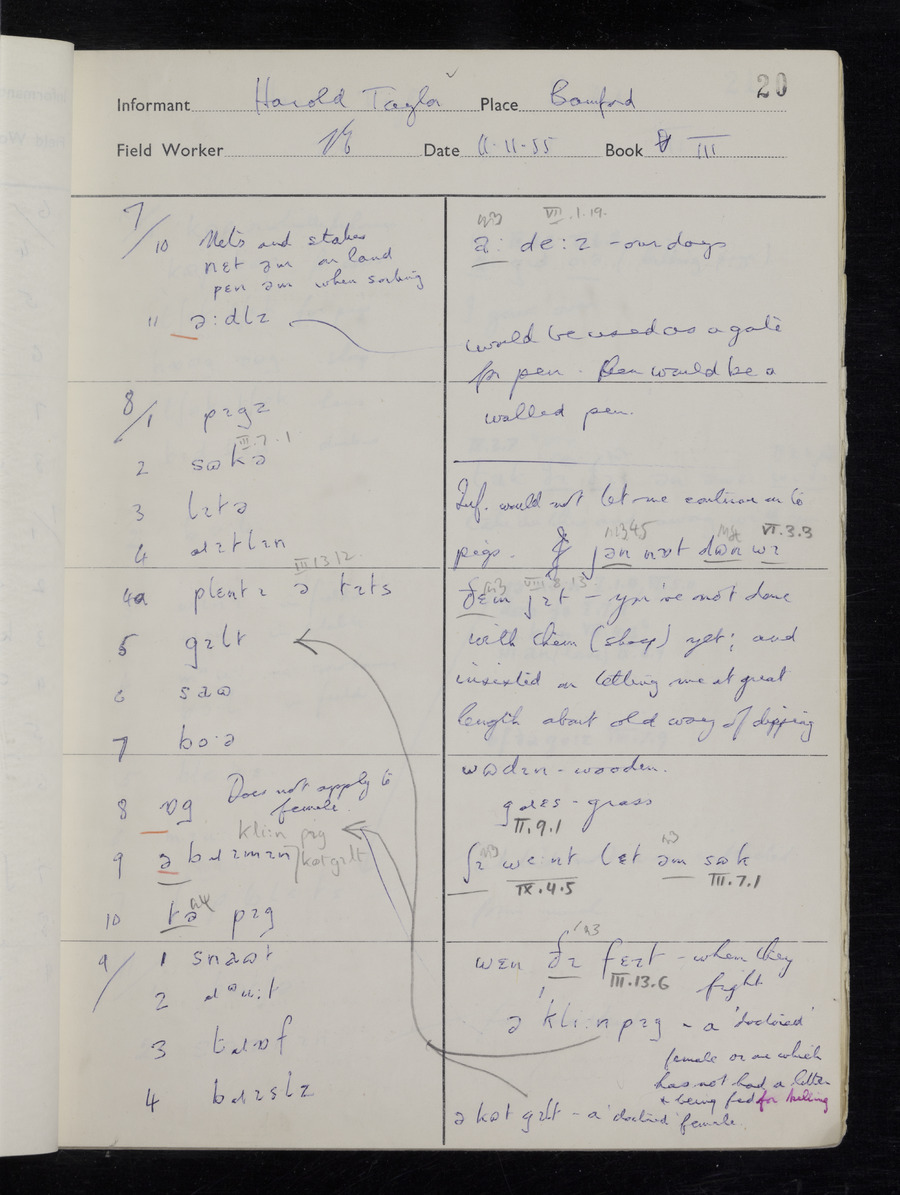 20
Informant Harold Taylor Place Bamford
Field Worker Date 11-11-55 Book III
7/10 Nets and stakes
nɛt əm on land
pen əm when sorting
11 ə:dlz
8/1 pɪgz
III.7.1
2 sɷkə
3 lɪtə
4 ɹɪtlɪn
III 13 12
4a plɛntɪ ə tɪts
5 gɪlt
6 saɷ
7 bɔ·ə
8 ɒg Does not apply to
female.
kli:n pɪg
9 ə bɹɪmɪn kət gɪlt
10 tə pɪg
9/1 snaɷt
2 ɹᵊu:t
3 tɹɒf
4 bɹɪslz
VII.1.19.
a: de:z - our days
would be used as a gate
for pen. Pen would be a
walled pen.
Inf. would not let me continue on to
VI.3.3
pigs. jən nɒt dɷn wɪ
VIII.8.13
ðɛm jɪt - you've not done
with them (sheep) yet; and
insisted on telling me at great
length about old way of dipping
wɷdɪn - wooden.
gɹɛs - grass
II.9.1
ʃɪ we:nt lɛt əm sɷk
IX.4.5 III.7.1
wɛn ðɪ fɛɪt - when they
III.13.6 fight
ə kli:n pɪg - a 'doctored'
female or one which
has not had a litter
& being fed for killing
ə kət gɪlt - a 'doctored' female.